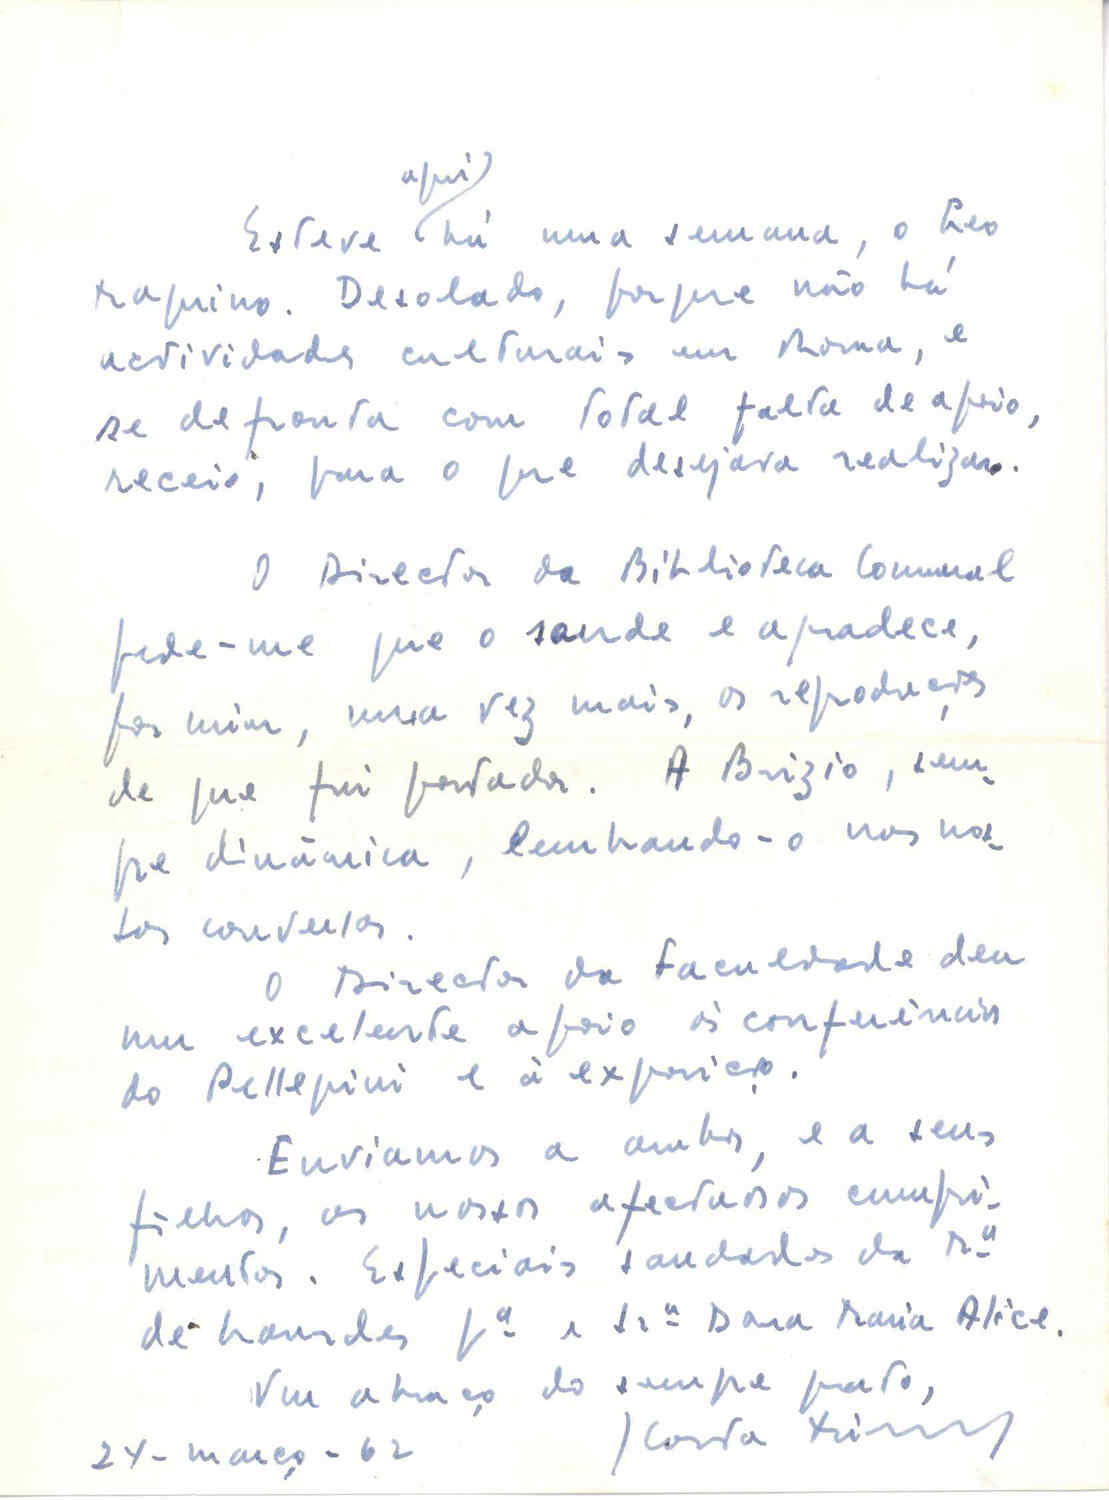 aqui
Esteve há uma semana, o Leo
Magnino. Desolado, porque não há
actividades culturais em Roma, e
se defronta com total falta de apoio,
receio, para o que desejava realizar.
O Director da Biblioteca Comunal
pede-me que o saude e agradece,
por mim, uma vez mais, as reproduções
de que fui portador. A Brizio, sem-
pre dinâmica, lembrando-o nas nos-
sas conversas.
O Director da Faculdade deu
um excelente apoio às conferências
do Pellegrini e à exposição.
Enviamos a ambos, e a seus
filhos, os nossos afectuosos cumpri-
mentos. Especiais saudades da Mª
de Lourdes pª a Srª Dona Maria Alice.
Um abraço do sempre grato,
Costa
24-março-62